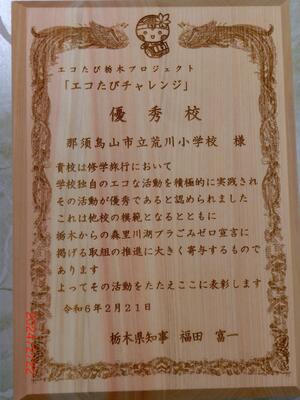 エコたび栃木プロジェクト
「エコたびチャレンジ」
優秀校
那須烏山市立荒川小学校 様
貴校は修学旅行において
学校独自のエコな活動を積極的に実践され
その活動が優秀であると認められました
これは他校の模範となるとともに
栃木からの森里川湖プラごみゼロ宣言に
掲げる取組の推進に大きく寄与するもので
あります
よってその活動をたたえここに表彰します
令和6年2月21日
栃木県知事 福田 富一